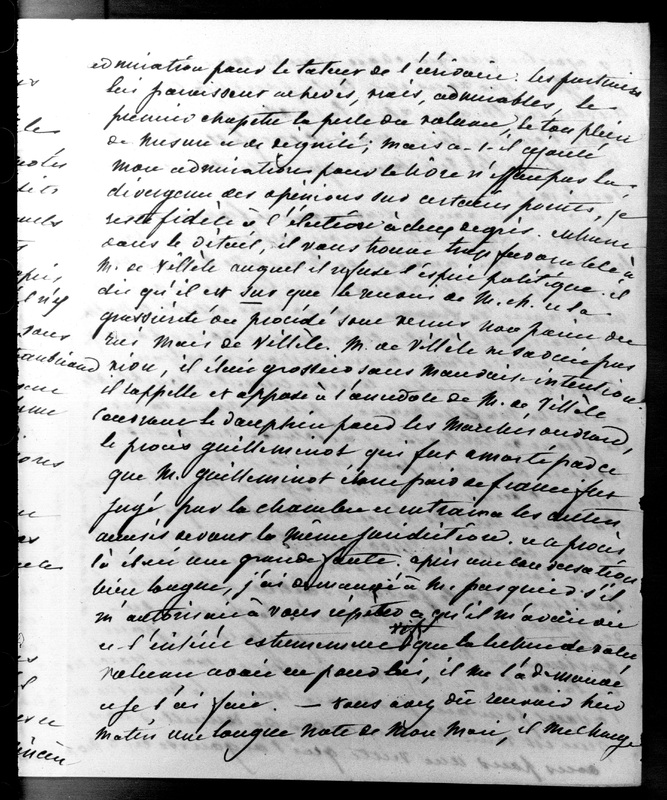 admiration pour le talent de l'écrivain. les portraits
lui paraissent achevés, vrais, admirables, le
premier chapitre la perle du volume, le ton plein
de mesure et de dignité; mais a-t-il ajouté
mon admiration pour le livre n'efface pas la
divergence des opinions sur certains points, je
reste fidèle à l'élection à deux degrés. entrant
dans le détail, il vous trouve trop favorable à
M. de Villèle auquel il refuse l'esprit politique. il
dit qu'il est sur que le renvoi de M. Ch. et la
grossièreté du procédé sont venus non pas du
roi mais de Villèle. M. de Villèle ne savait pas
vivre, il était grossier sans mauvaise intention.
il rappelle et oppose à l'anecdote de M. de Villèle
couvrant le dauphin pour les marchés ouvrard,
le procès guilleminot qui fut amorti parce
que M. guilleminot étant pair de france fut
jugé par la chambre et entraina les autres
accusés devant la même juridiction. ce procès
là était une grande faute. après une conversation
bien longue, j'ai demandé à M. pasquier s'il
m'autorisait à vous répéter ce qu'il m'avait dit
et l'intérêt extrêmement vif que la lecture de votre
volume avait eu pour lui, il me l'a demandé
et je l'ai fait. — vous avez dû recevoir hier
matin une longue note de mon mari, il me charge